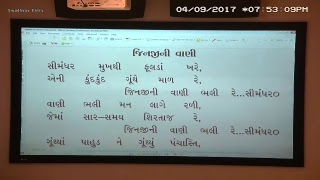 04/09/2017 *07:53:09PM
જિનજીની વાણી
સીમંધર મુખથી ફૂલડાં ખરે,
એની કુંદકુંદ ગૂંથે માળ રે,
જિનજીની વાણી ભલી રે...સીમંધર૦
વાણી ભલી મન લાગે રળી,
જેમાં સાર-સમય શિરતાજ રે,
જિનજીની વાણી ભલી રે...સીમંધર૦
ગૂંથ્યા પાહુડ ને ગૂંથ્યું પંચાસ્તિ,